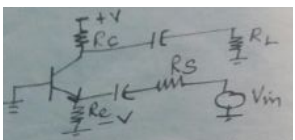 +V
RC
RL
RS
Re
-V
Vin